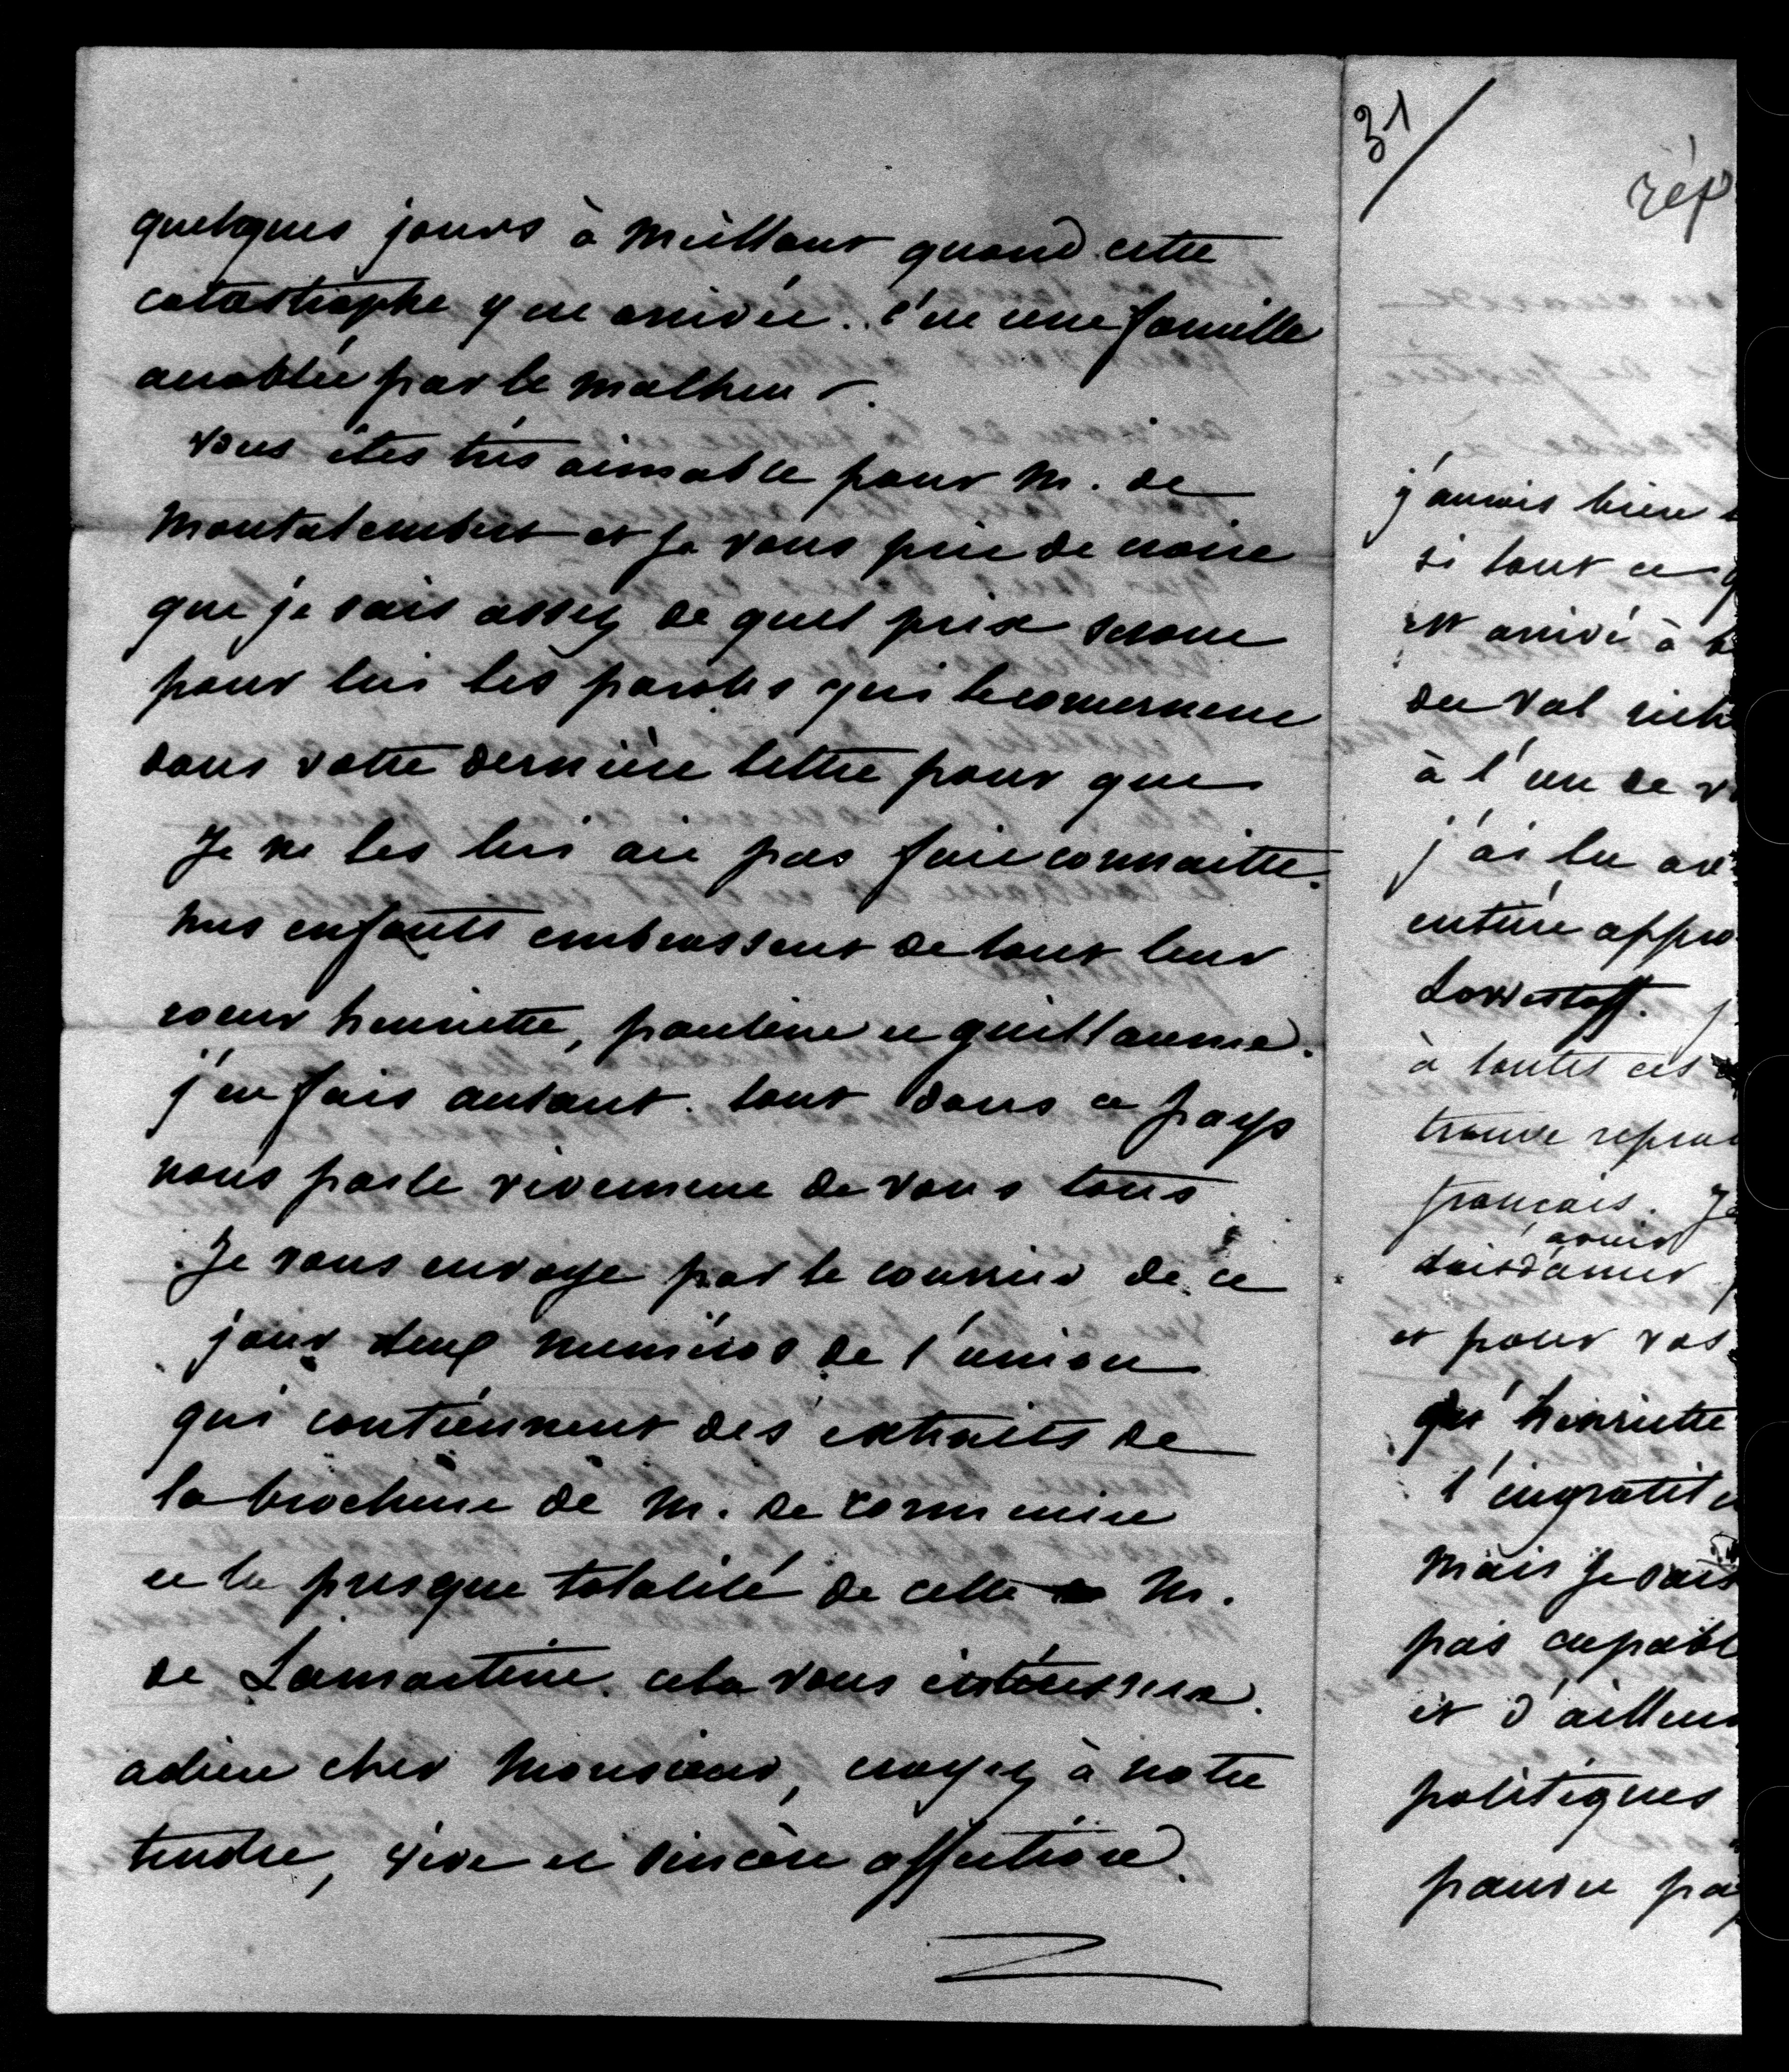 quelques jours à Meillant quand cette
catastrophe y est arrivée. c'est une famille
accablée par le malheur.
vous êtes très aimable pour M. de
Montalembert et je vous prie de croire
que je sais assez de quel prix seront
pour lui les paroles qui le concernent
dans votre dernière lettre pour que
Je ne les lui aie pas fait connaitre.
mes enfants embrassent de tout leur
coeur henriette, pauline et guillaume.
j'en fais autant. tout dans ce pays
nous parle vivement de vous tous
Je vous envoye par le courrier de ce
jour deux numéros de l'union
qui contiennent des extraits de
la brochure de M. de cormenin
et la presque totalité de celle de M.
de Lamartine. cela vous intéressera.
adieu cher Monsieur, croyez à notre
tendre, vive et sincère affection.
31/
rép
j'aurois bien
si tout ce q
est arrivé à
du val rich
à l'un de v
j'ai lu av
entière appro
Lowestoff.
à toutes ces
trouve repro
français. Je
avoir
dois d'amer
et pour vos
qu'henriette
l'ingratit
mais Je sais
pas capabl
et d'ailleurs
politiques
pauvre pa